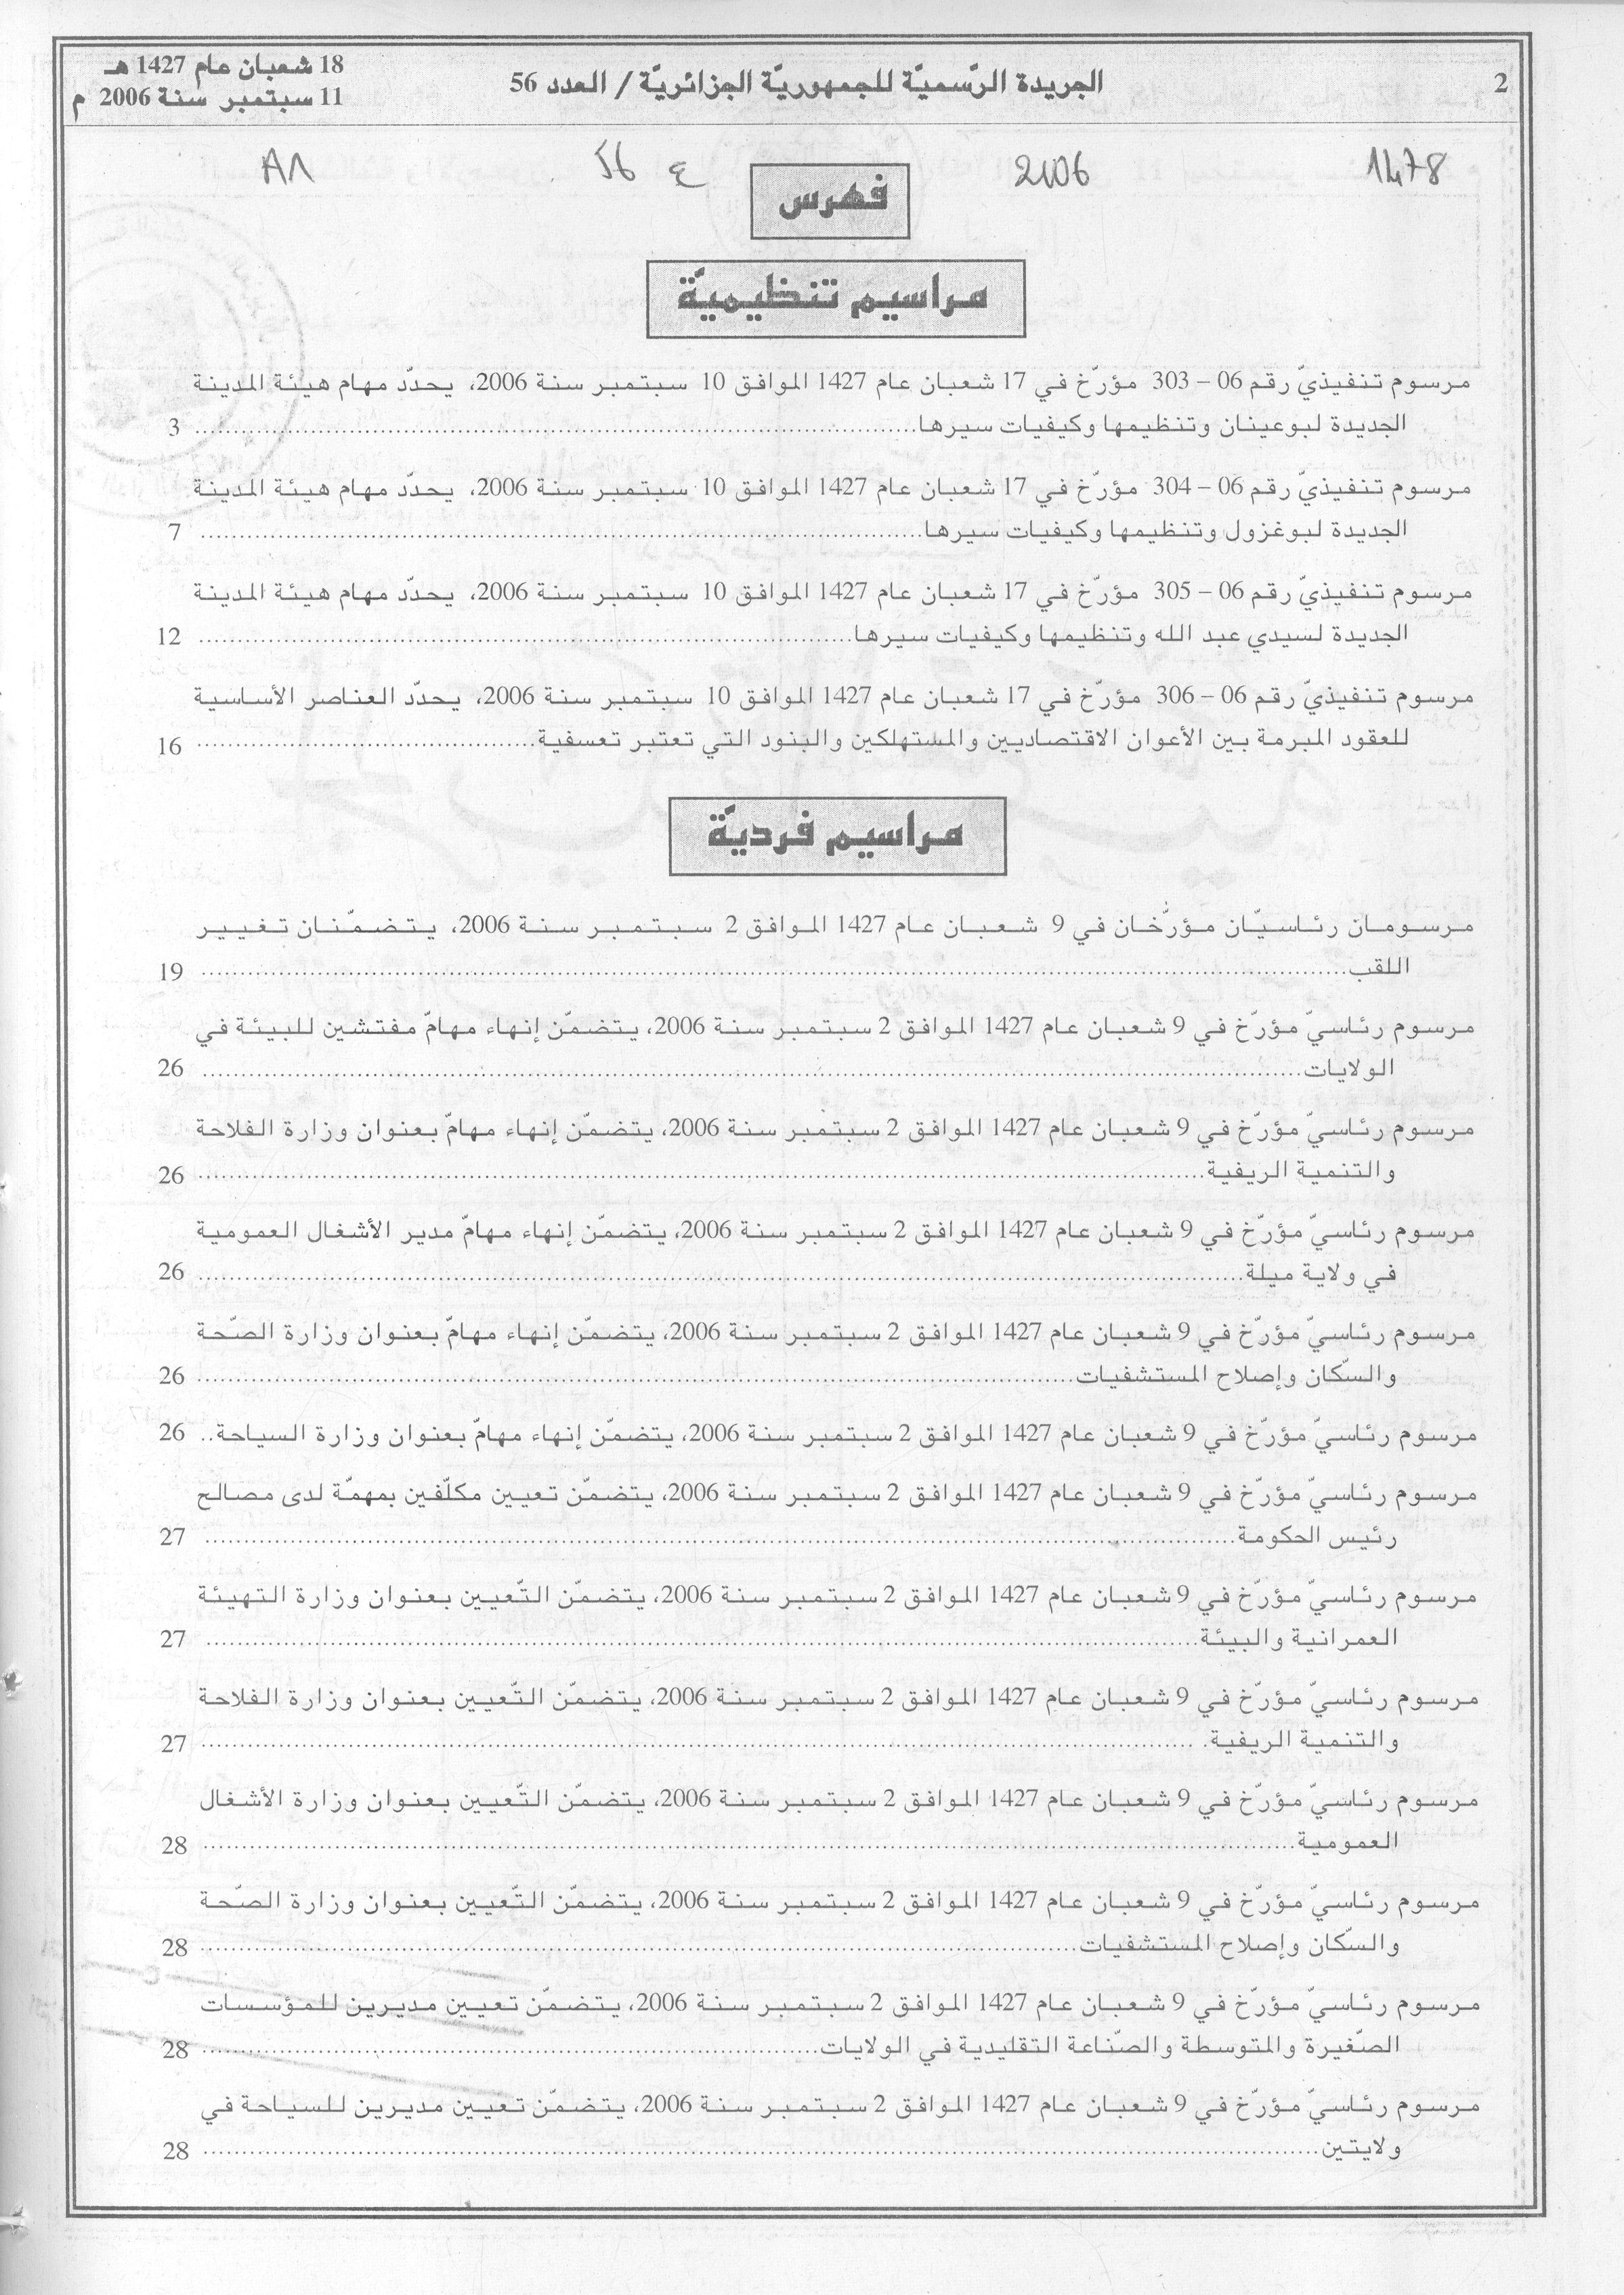 2
الجريدة الرّسميّة للجمهوريّة الجزائريّة / العدد 56
18 شعبان عام 1427 هـ
11 سبتمبر سنة 2006 م
1478
2006
ع 56
A1
فهرس
مراسيم تنظيميّة
مرسوم تنفيذيّ رقم 06 – 303 مؤرّخ في 17 شعبان عام 1427 الموافق 10 سبتمبر سنة 2006، يحدّد مهام هيئة المدينة
الجديدة لبوعينان وتنظيمها وكيفيات سيرها........ 3
مرسوم تنفيذيّ رقم 06 – 304 مؤرّخ في 17 شعبان عام 1427 الموافق 10 سبتمبر سنة 2006، يحدّد مهام هيئة المدينة
الجديدة لبوغزول وتنظيمها وكيفيات سيرها........ 7
مرسوم تنفيذيّ رقم 06 – 305 مؤرّخ في 17 شعبان عام 1427 الموافق 10 سبتمبر سنة 2006، يحدّد مهام هيئة المدينة
الجديدة لسيدي عبد الله وتنظيمها وكيفيات سيرها........ 12
مرسوم تنفيذيّ رقم 06 – 306 مؤرّخ في 17 شعبان عام 1427 الموافق 10 سبتمبر سنة 2006، يحدّد العناصر الأساسية
للعقود المبرمة بين الأعوان الاقتصاديين والمستهلكين والبنود التي تعتبر تعسفية........ 16
مراسيم فرديّة
مرسومان رئاسيّان مؤرّخان في 9 شعبان عام 1427 الموافق 2 سبتمبر سنة 2006، يتضمّنان تغيير
اللقب........ 19
مرسوم رئاسيّ مؤرّخ في 9 شعبان عام 1427 الموافق 2 سبتمبر سنة 2006، يتضمّن إنهاء مهامّ مفتشين للبيئة في
الولايات........ 26
مرسوم رئاسيّ مؤرّخ في 9 شعبان عام 1427 الموافق 2 سبتمبر سنة 2006، يتضمّن إنهاء مهامّ بعنوان وزارة الفلاحة
والتنمية الريفية........ 26
مرسوم رئاسيّ مؤرّخ في 9 شعبان عام 1427 الموافق 2 سبتمبر سنة 2006، يتضمّن إنهاء مهامّ مدير الأشغال العمومية
في ولاية ميلة........ 26
مرسوم رئاسيّ مؤرّخ في 9 شعبان عام 1427 الموافق 2 سبتمبر سنة 2006، يتضمّن إنهاء مهامّ بعنوان وزارة الصّحة
والسّكان وإصلاح المستشفيات........ 26
مرسوم رئاسيّ مؤرّخ في 9 شعبان عام 1427 الموافق 2 سبتمبر سنة 2006، يتضمّن إنهاء مهامّ بعنوان وزارة السياحة.. 26
مرسوم رئاسيّ مؤرّخ في 9 شعبان عام 1427 الموافق 2 سبتمبر سنة 2006، يتضمّن تعيين مكلّفين بمهمّة لدى مصالح
رئيس الحكومة........ 27
مرسوم رئاسيّ مؤرّخ في 9 شعبان عام 1427 الموافق 2 سبتمبر سنة 2006، يتضمّن التّعيين بعنوان وزارة التهيئة
العمرانية والبيئة........ 27
مرسوم رئاسيّ مؤرّخ في 9 شعبان عام 1427 الموافق 2 سبتمبر سنة 2006، يتضمّن التّعيين بعنوان وزارة الفلاحة
والتنمية الريفية........ 27
مرسوم رئاسيّ مؤرّخ في 9 شعبان عام 1427 الموافق 2 سبتمبر سنة 2006، يتضمّن التّعيين بعنوان وزارة الأشغال
العمومية........ 28
مرسوم رئاسيّ مؤرّخ في 9 شعبان عام 1427 الموافق 2 سبتمبر سنة 2006، يتضمّن التّعيين بعنوان وزارة الصّحة
والسّكان وإصلاح المستشفيات........ 28
مرسوم رئاسيّ مؤرّخ في 9 شعبان عام 1427 الموافق 2 سبتمبر سنة 2006، يتضمّن تعيين مديرين للمؤسسات
الصّغيرة والمتوسطة والصّناعة التقليدية في الولايات........ 28
مرسوم رئاسيّ مؤرّخ في 9 شعبان عام 1427 الموافق 2 سبتمبر سنة 2006، يتضمّن تعيين مديرين للسياحة في
ولايتين........ 28